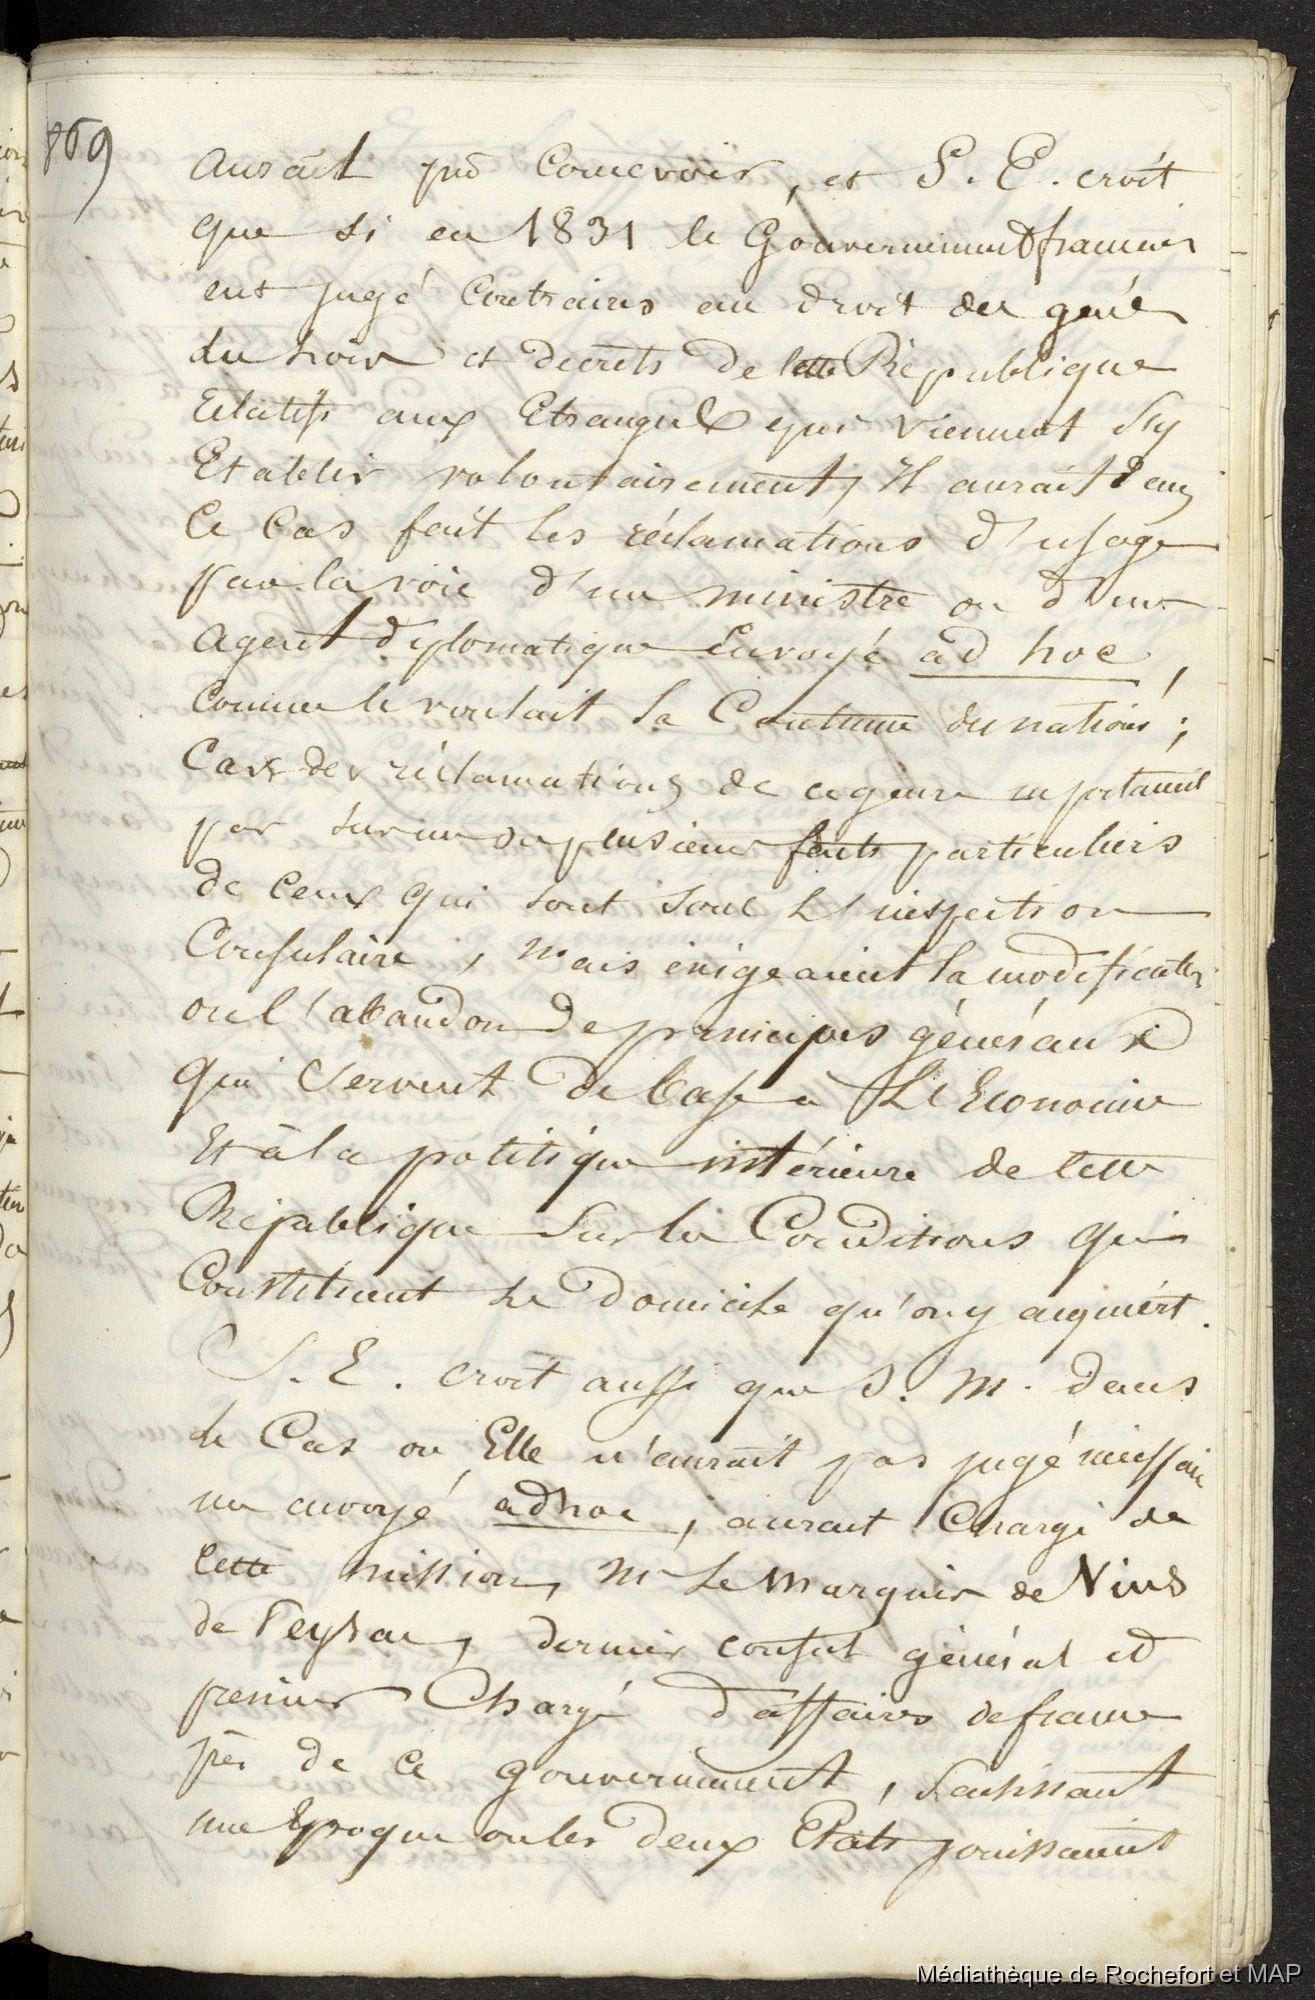 869
aurait pû concevoir, et S. E. croit
que si en 1831 le Gouvernement francais
eut jugé contraires au droit des gens
les loix et decrets de cette République
relatifs aux Etrangers qui viennent s'y
Etablir volontairement, il aurait dans
ce cas fait les réclamations d'usage
par la voie d'un ministre ou d'un
agent diplomatique Envoyé ad hoc,
comme le voulait la Coutume des nations;
Car des réclamations de ce genre ne portaient
pas sur un ou plusieurs faits particuliers
de ceux qui sont sous l'inspection
Consulaire, mais éxigeaient la modification
ou l'abandon de principes généraux
qui servent de base à L'Economie
Et à la politique intérieure de cette
République sur les Conditions qui
Constituent le domicile qu'on y acquiert.
S. E. croit aussi que S. M. dans
le Cas ou Elle n'aurait pas jugé nécessaire
un envoyé ad hoc, aurait chargé de
cette mission, Mr Le Marquis de Vins
de Peysac, dernier consul général et
premier Chargé d'affaires de france
près de ce gouvernement, saisissant
une Epoque ou les deux Etats jouissaient
Médiathèque de Rochefort et MAP